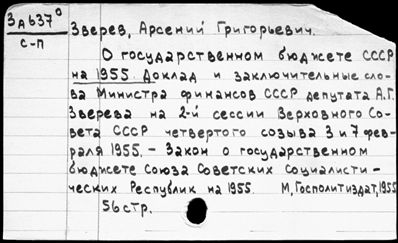 3А637⁰
С-П
Зверев, Арсений Григорьевич.
О государственном бюджете СССР
на 1955. Доклад и заключительные сло-
ва Министра финансов СССР депутата А.Г.
Зверева на 2-й сессии Верховного Со-
вета СССР четвертого созыва 3 и 7 фев-
раля 1955. - Закон о государственном
бюджете Союза Советских Социалисти-
ческих Республик на 1955. М, Госполитиздат, 1955
56 стр.